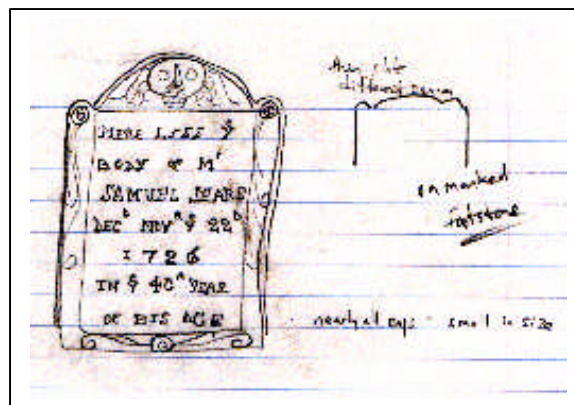 HERE LYES Y
BODY OF Mr
SAMUEL SEARS
DECd NOVr Y 22d
1726
IN Y 40th YEAR
OF HIS AGE
different
unmarked
footstone
nearly all caps - small in size